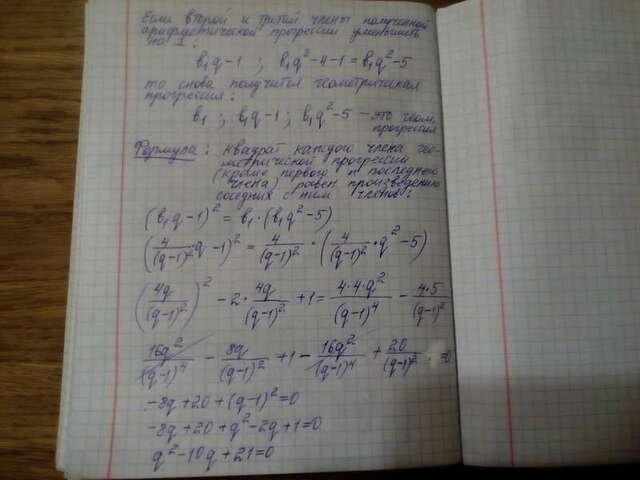 Если второй и третий члены полученной
арифметической прогрессии уменьшить
на 1:
b₁q-1 ; b₁q²-4-1=b₁q²-5
то снова получится геометрическая
прогрессия:
b₁ ; b₁q-1 ; b₁q²-5 – это геом.
прогрессия
Формула: Квадрат каждого члена гео-
метрической прогрессии
(кроме первого и последнего
члена) равен произведению
соседних с ним членов:
(b₁q-1)² = b₁·(b₁q²-5)
(4/(q-1)²·q-1)² = 4/(q-1)²·(4/(q-1)²·q²-5)
(4q/(q-1)²)² - 2·4q/(q-1)² + 1 = 4·4·q²/(q-1)⁴ - 4·5/(q-1)²
16q²/(q-1)⁴ - 8q/(q-1)² + 1 - 16q²/(q-1)⁴ + 20/(q-1)² = 0
-8q+20+(q-1)²=0
-8q+20+q²-2q+1=0
q²-10q+21=0